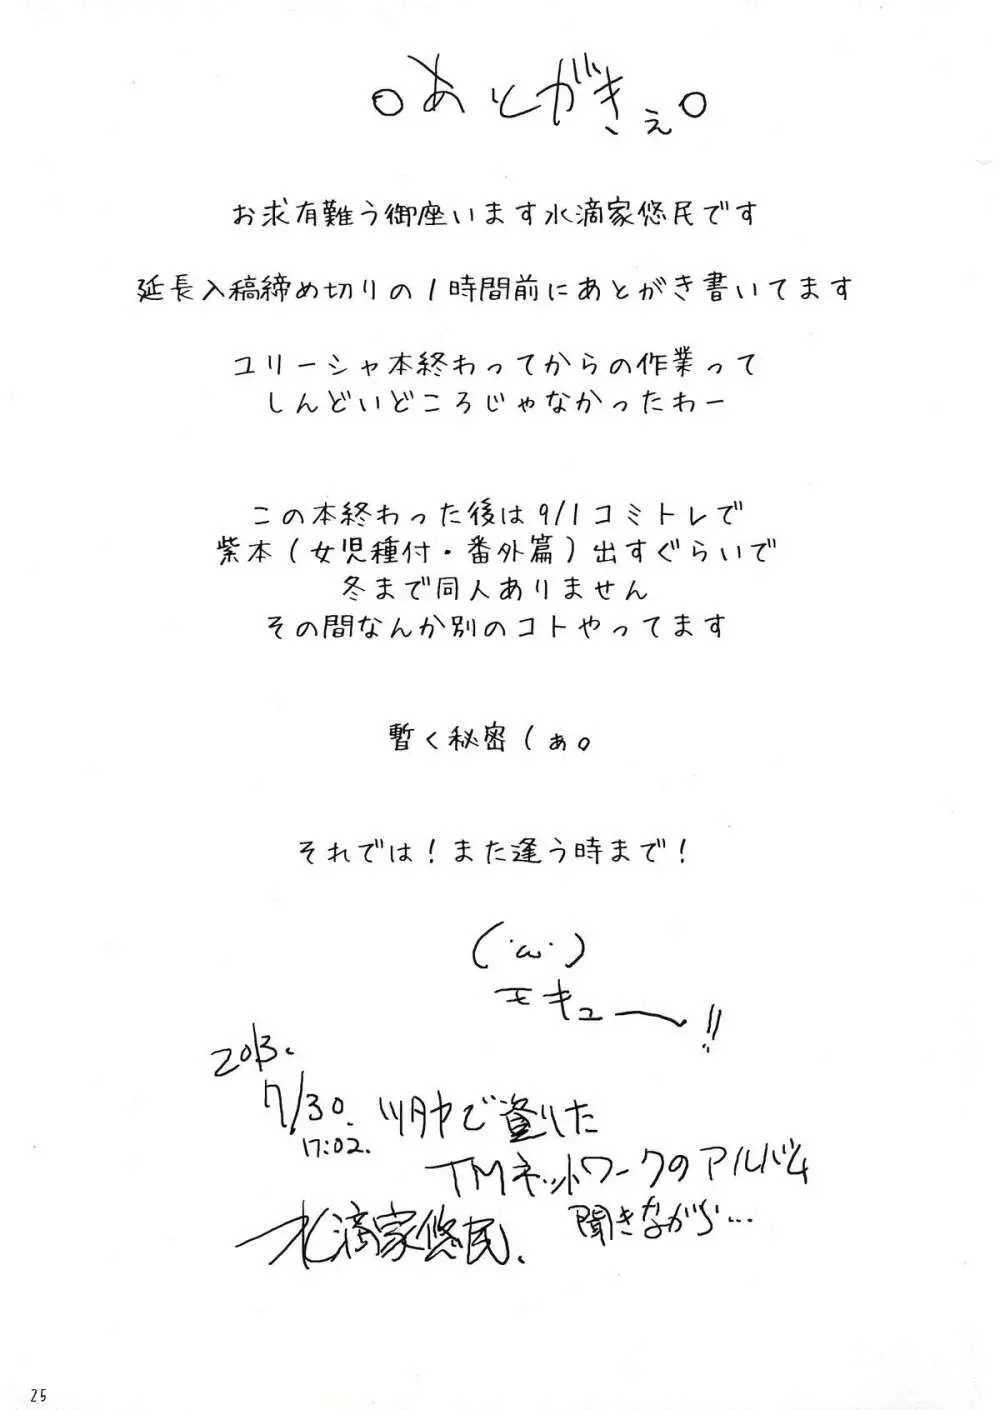 ○あとがきぇ○
お求有難う御座います水滴家悠民です
延長入稿締め切りの1時間前にあとがき書いてます
ユリーシャ本終わってからの作業って
しんどいどころじゃなかったわー
この本終わった後は9/1コミトレで
紫本(女児種付・番外篇)出すぐらいで
冬まで同人ありません
その間なんか別のコトやってます
暫く秘密(ぁ。
それでは!また逢う時まで!
(・ω・)
モキュー!!
2013.
7/30
17:02.
TMネットワークのアルバム
聞きながら…
水滴家悠民.
25